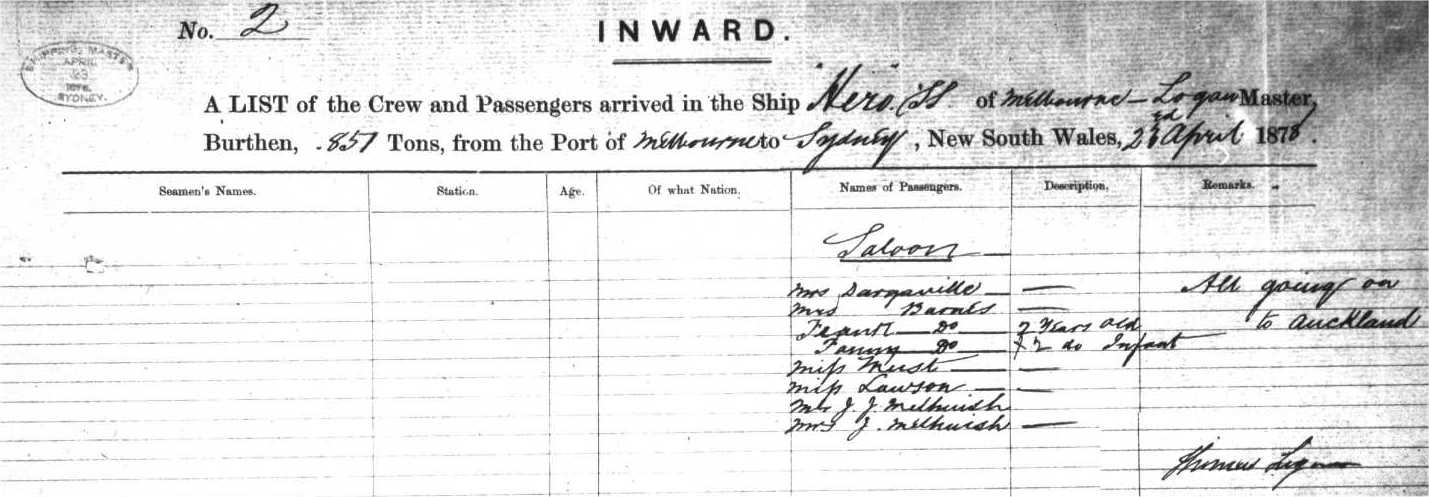 No. 2
INWARD.
SHIPPING MASTER
APRIL
23
1878.
SYDNEY.
A LIST of the Crew and Passengers arrived in the Ship "Hero" SS of Melbourne – Logan Master,
Burthen, 851 Tons, from the Port of Melbourne to Sydney, New South Wales, 23rd April 1878.
Seamen's Names. Station. Age. Of what Nation. Names of Passengers. Description. Remarks.
Saloon —
Mrs Dargaville — — All going on
Mrs Barnes — —
Frank — Do — 7 Years old — to Auckland
Fanny — Do — 2 do Infant
Miss — —
Miss Lawson — —
Mr J. J. Melhuish
Mrs J. Melhuish —
Thomas Logan